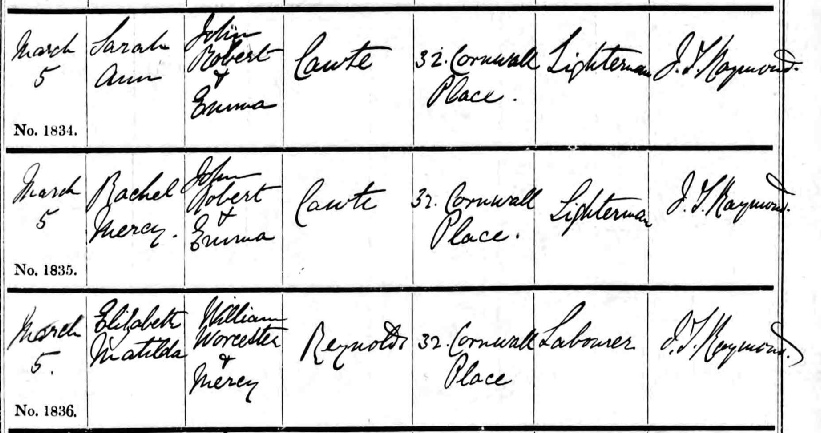 March
5
No. 1834.
Sarah
Ann
John
Robert
&
Emma
Cawte
32. Cornwall
Place.
Lighterman
J. T. Raymond.
March
5
No. 1835.
Rachel
Mercy.
John
Robert
&
Emma
Cawte
32. Cornwall
Place.
Lighterman
J. T. Raymond.
March
5.
No. 1836.
Elizabeth
Matilda
William
Worcester
&
Mercy
Reynolds
32. Cornwall
Place
Labourer
J. T. Raymond.